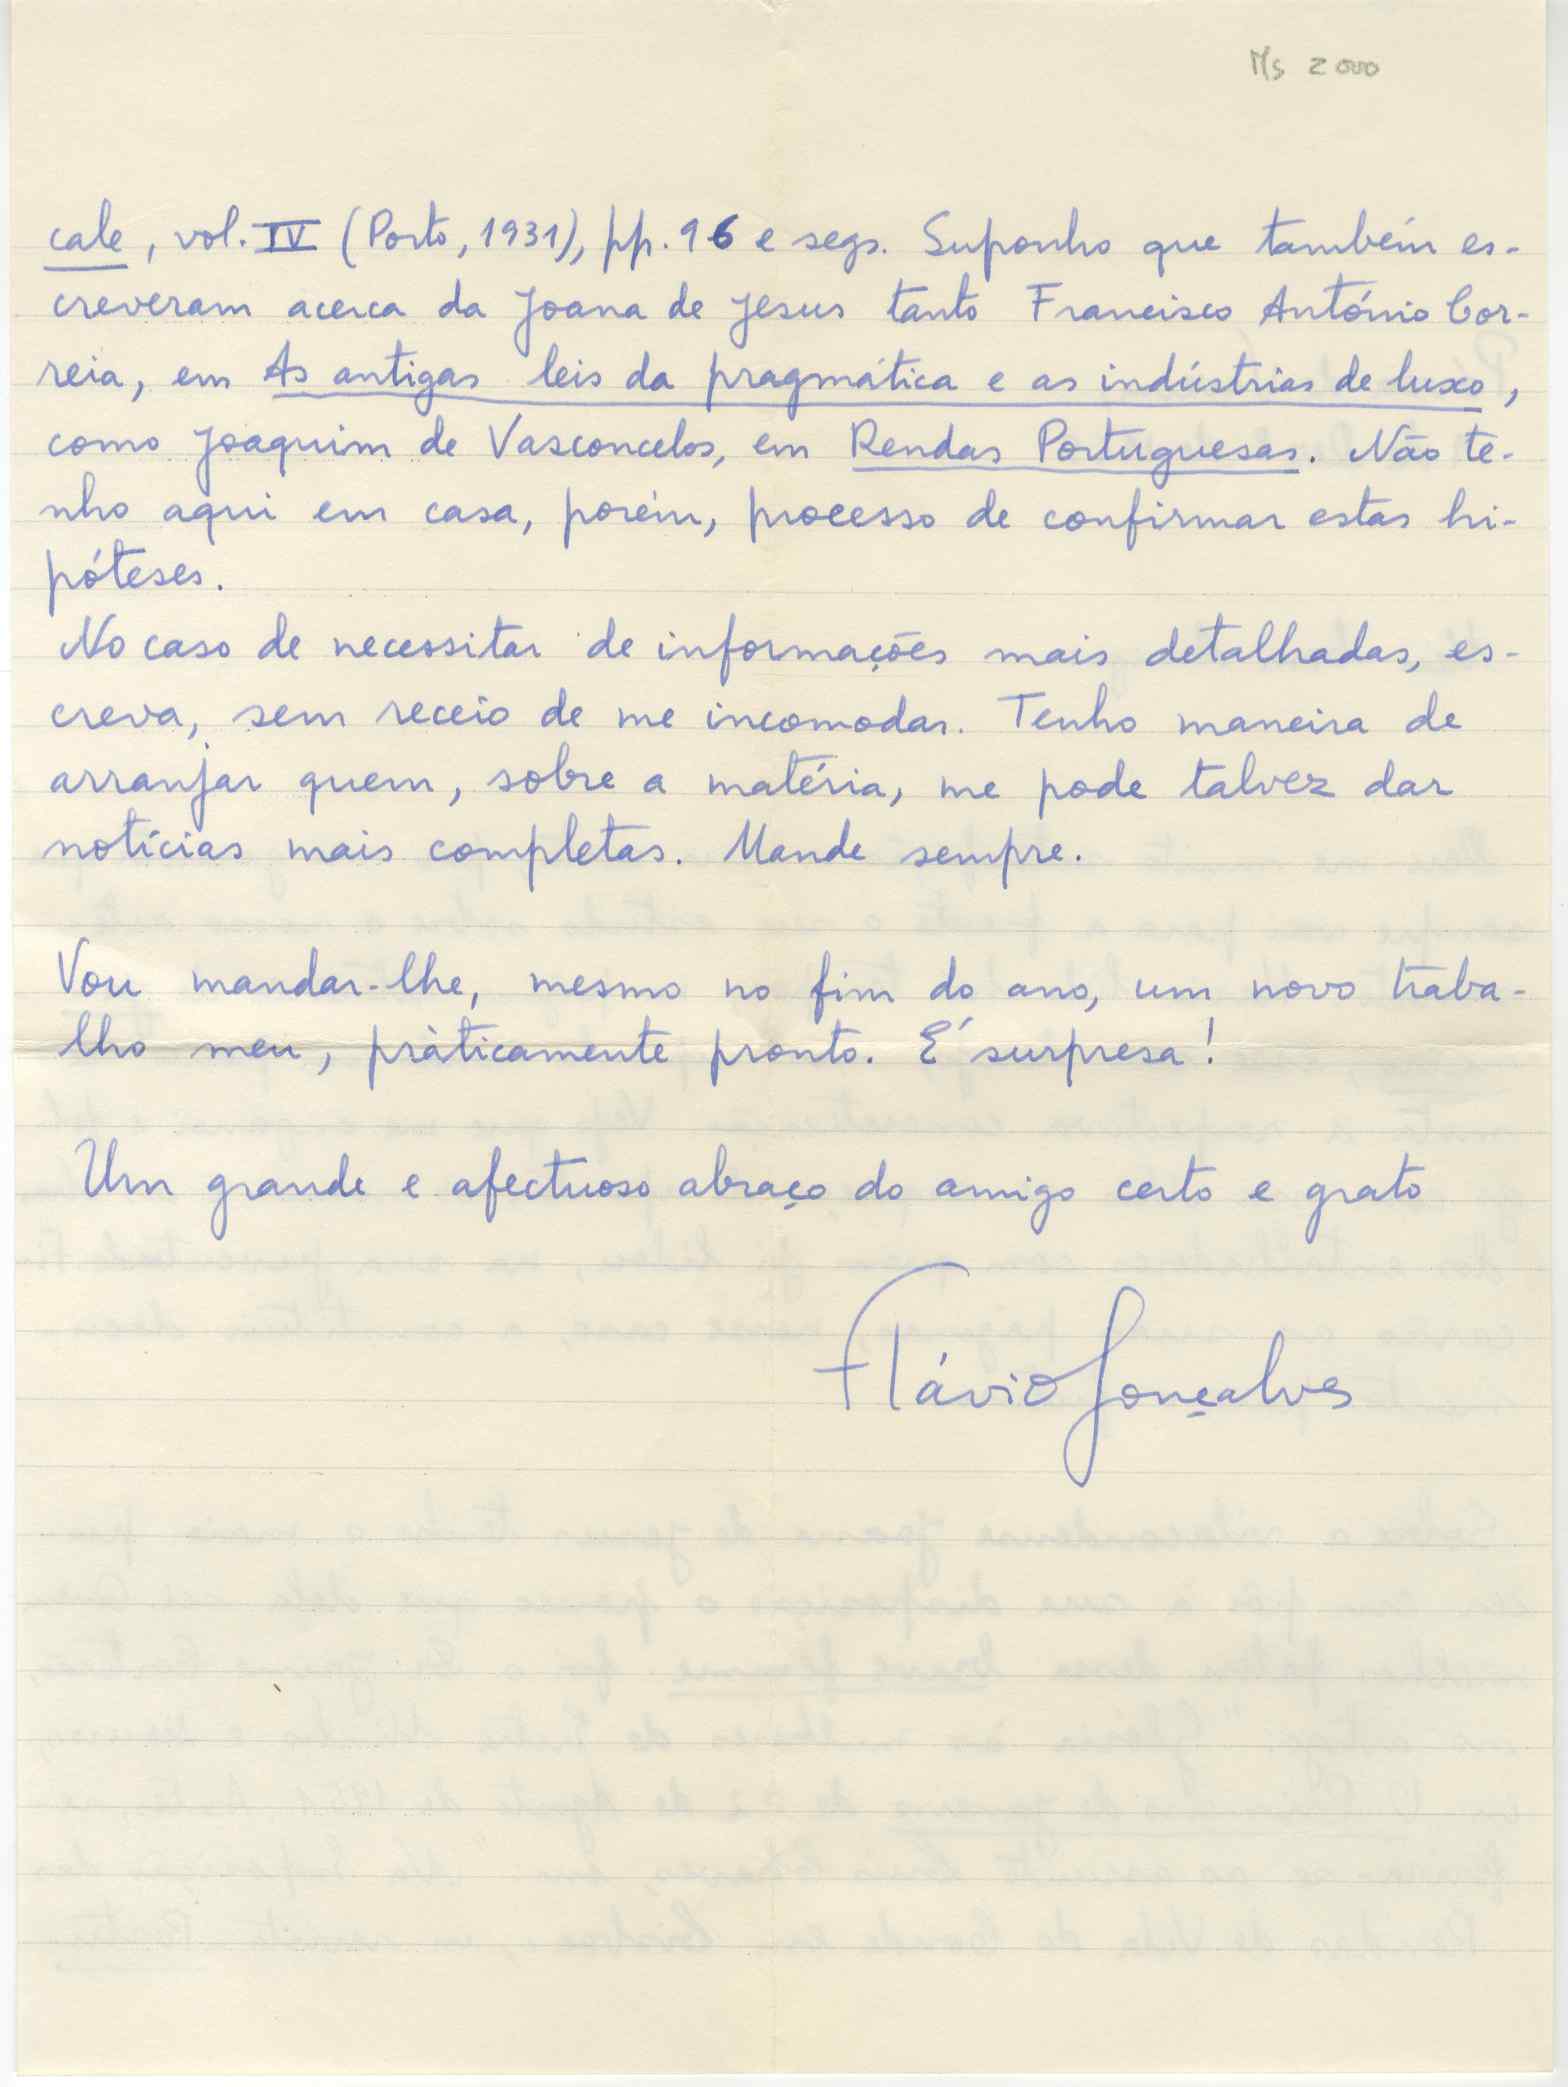 Ms 2000
cale, vol. IV (Porto, 1931), pp. 96 e segs. Suponho que também es-
creveram acerca da Joana de Jesus tanto Francisco António Cor-
reia, em As antigas leis da pragmática e as indústrias de luxo,
como Joaquim de Vasconcelos, em Rendas Portuguesas. Não te-
nho aqui em casa, porém, processo de confirmar estas hi-
póteses.
No caso de necessitar de informações mais detalhadas, es-
creva, sem receio de me incomodar. Tenho maneira de
arranjar quem, sobre a matéria, me pode talvez dar
notícias mais completas. Mande sempre.
Vou mandar-lhe, mesmo no fim do ano, um novo traba-
lho meu, pràticamente pronto. É surpresa!
Um grande e afectuoso abraço do amigo certo e grato
Flávio Gonçalves